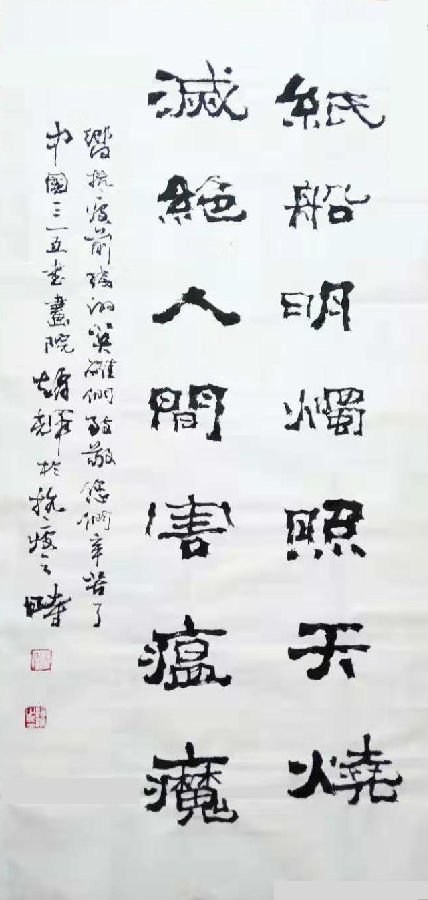 紙船明燭照天燒
滅絕人間害瘟魔
響抗疫前线的英雄們致敬您們辛苦了
中國三一五书畫院 輝於抗疫之時